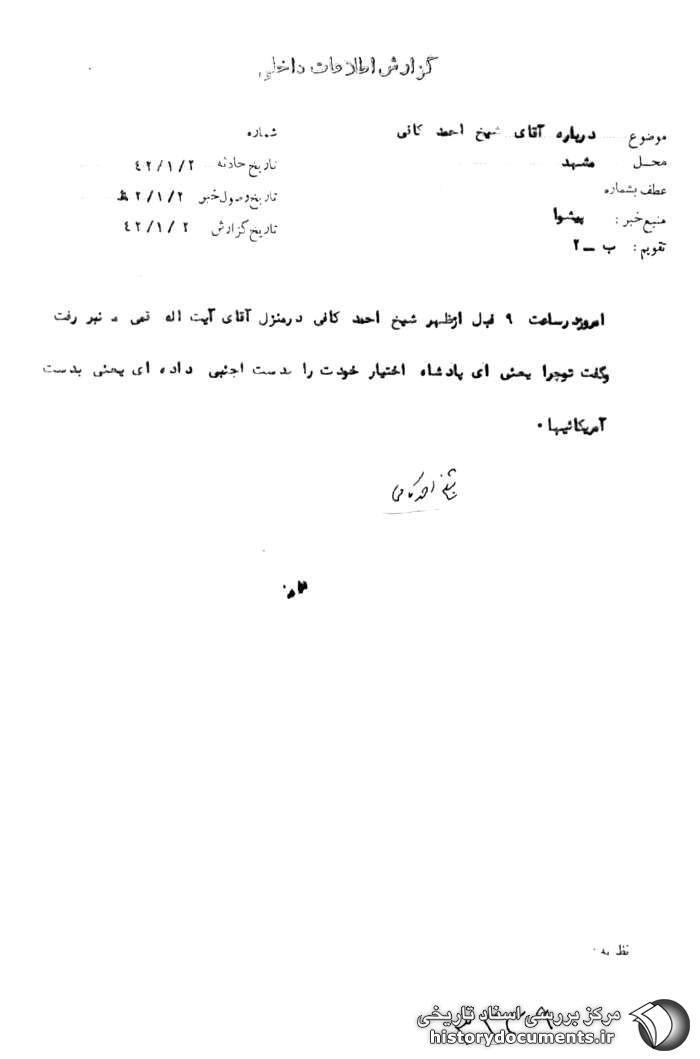 گزارش اطلاعات داخلی
موضوع درباره آقای شیخ احمد کافی
شماره
محل مشهد
تاریخ حادثه ٤٢/١/٢
عطف بشماره
تاریخ وصول خبر ٢/١/٢
منبع خبر : پیشوا
تاریخ گزارش ٤٢/١/٢
تقویم : ب ــ ٢
امروز درساعت ٩ قبل ازظهر شیخ احمد کافی درمنزل آقای آیت اله قمی منبر رفت
وگفت توچرا یعنی ای پادشاه اختیار خودت را بدست اجنبی داده ای یعنی بدست
آمریکائیها ٠
شیخ احمد کافی
نظریه :
مرکز بررسی اسناد تاریخی
historydocuments.ir